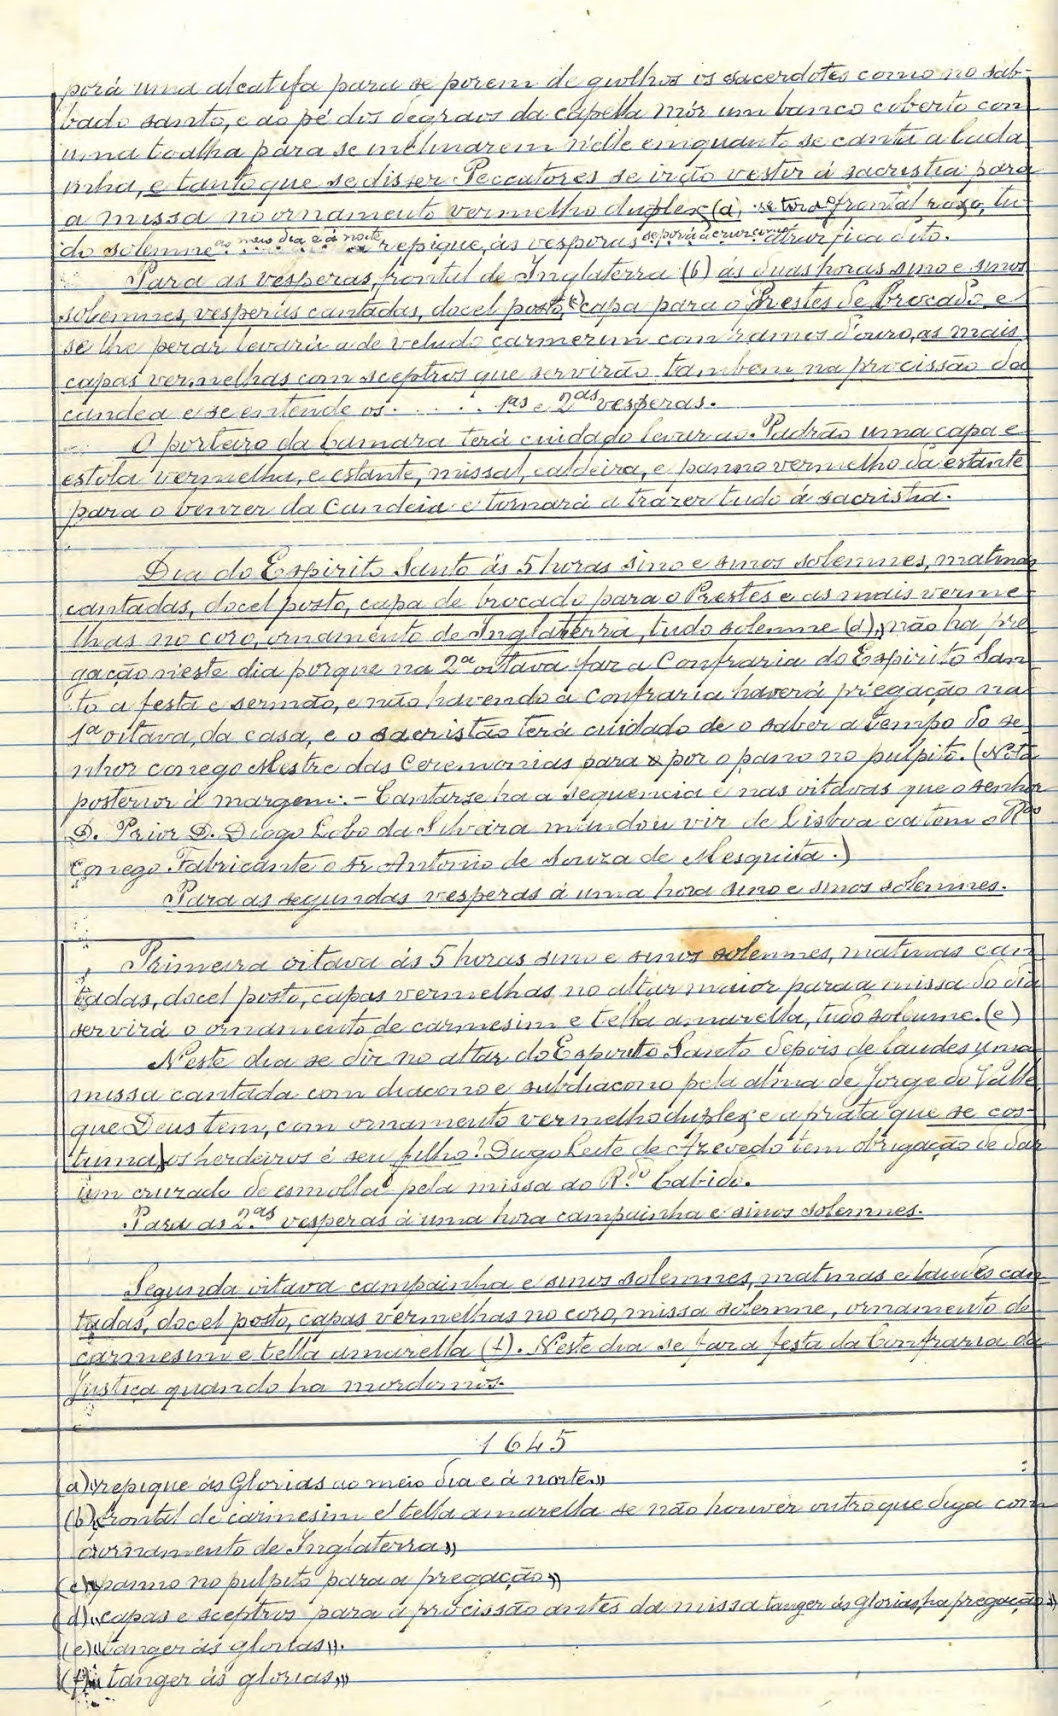 porá uma alcatifa para se porem de giolhos os sacerdotes como no sab-
bado santo, e ao pé dos degraos da capella mór um banco coberto com
uma toalha para se inclinarem n'elle emquanto se canta a lada
inha, e tanto que se disser Peccatores se irão vestir á sacristia para
a missa no ornamento vermelho duplex (a) se tira o frontal roxo, tu-
do solemne ao meio dia e á noite repique, ás vesperas se porá a cruz como atraz fica dito.
Para as vesperas, frontal de Inglaterra (b) ás duas horas sino e sinos
solemnes, vesperas cantadas, docel posto, (c) capa para o Prestes de brocado, e
se lhe pezar levará a de veludo carmezim com ramos d'ouro, as mais
capas vermelhas com sceptros que servirão tambem na procissão da
candea e se entende os . . . . . 1as e 2as vesperas.
O porteiro da Camara terá cuidado levar ao Padrão uma capa e
estola vermelha, e estante, missal, caldeira, e panno vermelho da estante
para o benzer da Candeia e tornará a trazer tudo á sacristia.
Dia do Espirito Santo ás 5 horas sino e sinos solemnes, matinas
cantadas, docel posto, capa de brocado para o Prestes e as mais verme
lhas no coro, ornamento de Inglaterra, tudo solemne (d), não ha pre
gação n'este dia porque na 2a oitava faz a Confraria do Espirito San
to a festa e sermão, e não havendo a Confraria haverá priegação na
1a oitava, da casa, e o sacristão terá cuidado de o saber a tempo do se
nhor conego Mestre das Ceremonias para por o pano no pulpito. (Nota
posterior á margem: - Cantarse ha a sequencia e nas oitavas que o senhor
D. Prior D. Diogo Lobo da Silveira mandou vir de Lisboa e a tem o Rdo
Conego Fabricante o sr Antonio de Souza de Mesquita.)
Para as segundas vesperas á uma hora sino e sinos solemnes.
Primeira oitava ás 5 horas sino e sinos solemnes, matinas can
tadas, docel posto, capas vermelhas, no altar maior para a missa do dia
servirá o ornamento de carmesim e tella amarella, tudo solemne. (e)
Neste dia se dir no altar do Espirito Santo depois de laudes uma
missa cantada com diacono e subdiacono pela alma de Jorge do Valle
que Deus tem, com ornamento vermelho duplex e a prata que se cos-
tuma, os herdeiros é seu filho? Diogo Leite de Azevedo tem obrigação de dar
um cruzado de esmolla pela missa ao R.do Cabido.
Para as 2.as vesperas á uma hora campainha e sinos solemnes.
Segunda oitava campainha e sinos solemnes, matinas e laudes can
tadas, docel posto, capas vermelhas no coro, missa solemne, ornamento de
carmesim e tella amarella (f). Neste dia se fara festa da Confraria da
Justiça quando ha mordomos.
1645
(a) «repique ás Glorias ao meio dia e á noite»
(b) «frontal de carmesim e tella amarella se não houver outro que diga com
o ornamento de Inglaterra»
(c) «panno no pulpito para a pregação»
(d) «capas e sceptros para a procissão antes da missa tanger ás glorias, ha pregação»
(e) «tanger ás glorias».
(f) «tanger ás glorias»